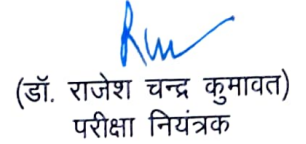 (डॉ. राजेश चन्द्र कुमावत)
परीक्षा नियंत्रक